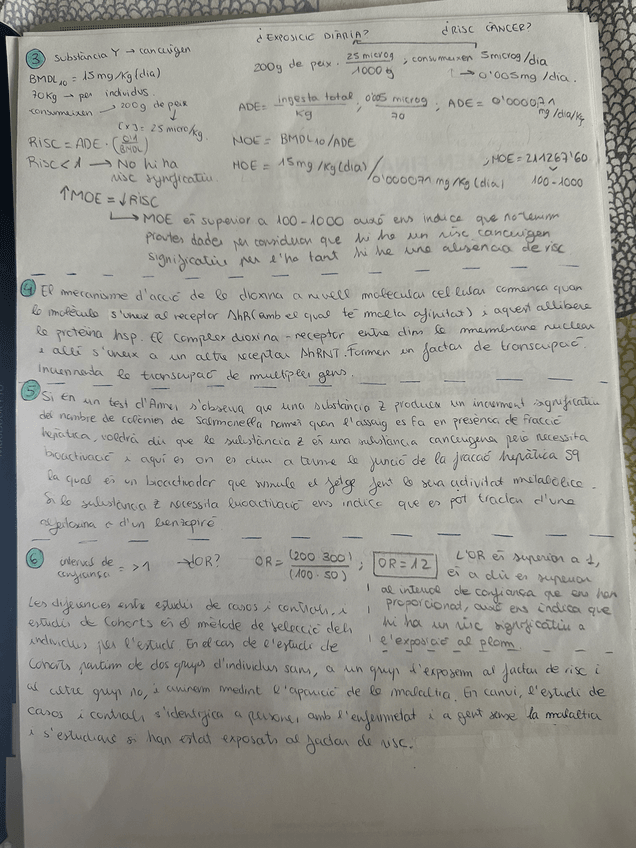 ¿EXPOSICIÓ DIÀRIA? ¿RISC CÀNCER?
③ Substància Y → cancerigen
200g de peix · 25 microg / 1000 g ; consumeixen 5microg/dia
↳ 0'005mg/dia.
BMDL10 = 15 mg/Kg(dia)
70Kg → per individus.
consumeixen → 200g de peix
[x] = 25 micro/kg.
ADE = ingesta total / Kg ; 0'005 microg / 70 ; ADE = 0'000071 mg/dia/Kg
RISC = ADE · (0'1 / BMDL)
MOE = BMDL10/ADE
RISC < 1 → No hi ha
risc significatiu.
MOE = 15 mg/Kg(dia) / 0'000071 mg/Kg(dia) ; MOE = 211267'60
100-1000
↑MOE = ↓RISC
↳ MOE és superior a 100-1000 això ens indica que no tenim
proves dades per considerar que hi ha un risc cancerigen
significatiu per l'ho tant hi ha una absència de risc
④ El mecanisme d'acció de la dioxina a nivell molecular cel·lular comença quan
la molècula s'uneix al receptor AhR (amb el qual té molta afinitat) i aquest allibera
la proteïna hsp. El complex dioxina-receptor entra dins la mmembrana nuclear
i allí s'uneix a un altre receptor AhRNT. Formen un factor de transcripció.
Incrementa la transcripció de multiples gens.
⑤ Si en un test d'Ames s'observa que una substància Z produeix un increment significatiu
del nombre de colònies de Salmonella només quan l'assaig es fa en presència de fracció
hepàtica, voldrà dir que la substància Z és una substància cancerigena però necessita
bioactivació i aquí es on es duu a terme la funció de la fracció hepàtica S9
la qual és un bioactivador que simula el fetge fent la seva activitat metabòlica.
Si la substància Z necessita bioactivació ens indica que es pot tractar d'una
aflatoxina o d'un benzopirè
⑥ interval de confiança = >1 → OR? OR = (200·300) / (100·50) ; OR = 12
L'OR és superior a 1,
és a dir es superior
al interval de confiança que ens han
proporcionat, això ens indica que
hi ha un risc significatiu a
l'exposició al plom
Les diferències entre estudis de casos i controls, i
estudis de Cohorts és el mètode de selecció dels
individus per l'estudi. En el cas de l'estudi de
Cohorts partim de dos grups d'individus sans, a un grup l'exposem al factor de risc i
al altre grup no, i anirem medint l'aparició de la malaltia. En canvi, l'estudi de
casos i controls s'identifica a persones amb l'enfermetat i a gent sense la malaltia
i s'estudiarà si han estat exposats al factor de risc.